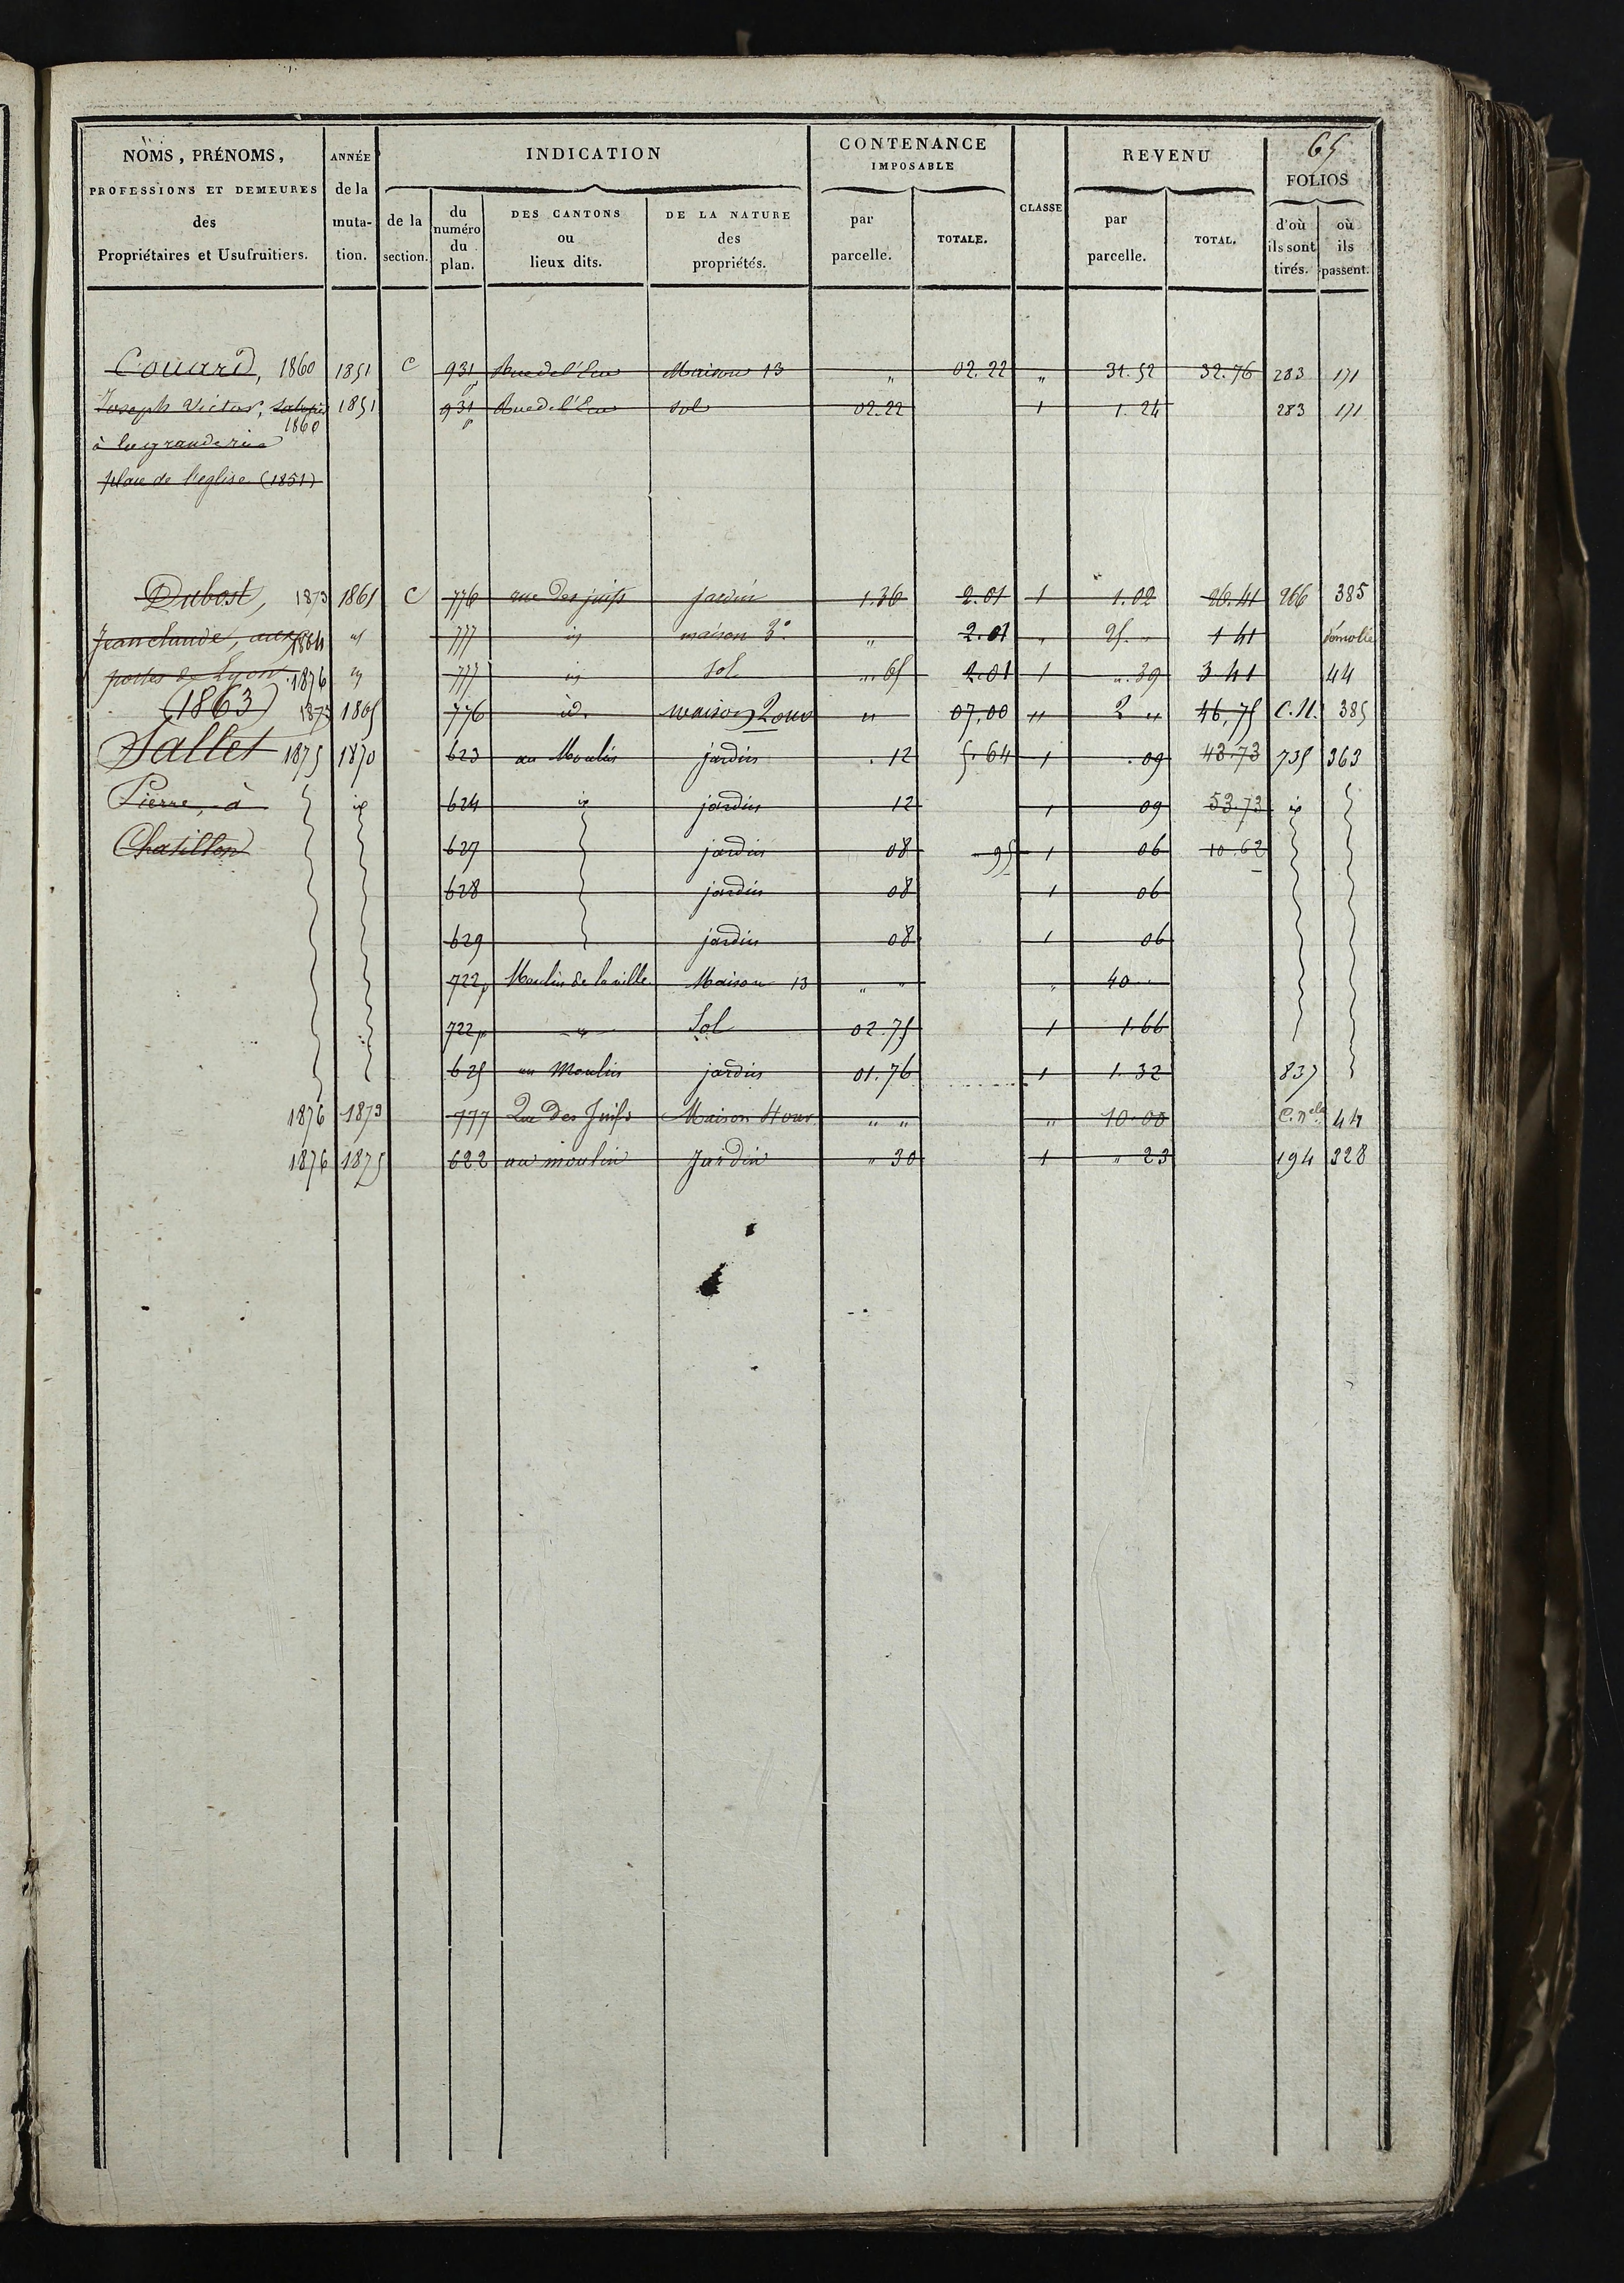 65
NOMS, PRÉNOMS, PROFESSIONS ET DEMEURES des Propriétaires et Usufruitiers.
ANNÉE de la muta- tion.
INDICATION
de la section.
du numéro du plan.
DES CANTONS ou lieux dits.
DE LA NATURE des propriétés.
CONTENANCE IMPOSABLE
par parcelle.
TOTALE.
CLASSE
REVENU
par parcelle.
TOTAL.
FOLIOS
d'où ils sont tirés.
où ils passent.
Couard, 1860 1851 C 931p Rue de l'Eau Maison 13 " 02.22 " 31.52 32.76 283 171
Joseph Victor, 1851 931p Rue de l'Eau Sol 02.22 1 1.24 283 171
1860
à la grande rue
place de l'eglise (1851)
Dubost, 1873 1861 C 776 rue des juifs jardin 1.36 2.01 1 1.02 26.41 266 385
Jean claude, aux 1864 id 777 id maison 3e " 2.01 " 25. " 1 41 démolie
portes de Lyon. 1876 id 777 id sol ". 65 2.01 1 ". 39 3 41 44
(1863) 1873 1865 776 id. maison 2 ouv " 07,00 " 2 " 46,75 C.N. 385
Sallet 1875 1870 623 au Moulin jardin . 12 5.64 1 . 09 43.73 735 363
Pierre, à id 624 id jardin 12 1 09 53.73 id
Chatillon 627 jardin 08 " 95 1 06 10.62
628 jardin 08 1 06
629 jardin 08 1 06
722p Moulin de la ville Maison 13 " " " 40 "
722p " Sol 02.75 1 1.66
625 au Moulin jardin 01.76 1 1.32 837
1876 1873 777 Rue Des Juifs Maison 4 ouv. " " " 10.00 C. nelle 44
1876 1875 622 au moulin Jardin " 30 1 " 23 194 328